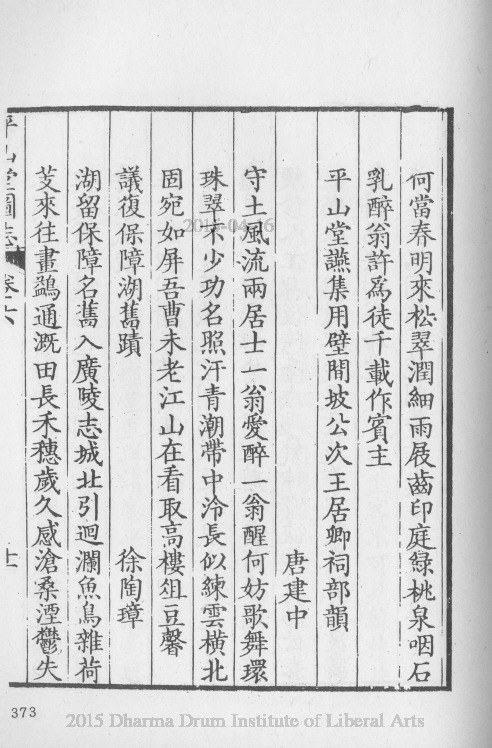 何當春明來松翠潤細雨屐齒印庭綠桃泉咽石
乳醉翁許為徒千載作賓主
平山堂讌集用壁間坡公次王居卿祠部韻
唐建中
守土風流兩居士一翁愛醉一翁醒何妨歌舞環
珠翠不少功名照汗青潮帶中泠長似練雲橫北
固宛如屏吾曹未老江山在看取高樓俎豆馨
議復保障湖舊蹟
徐陶璋
湖留保障名舊入廣陵志城北引迴瀾魚鳥雜荷
芰來往畫鷁通溉田長禾穗歲久感滄桑湮鬱失
平山堂圖志
卷六
十一
2015-04-16
373
2015 Dharma Drum Institute of Liberal Arts